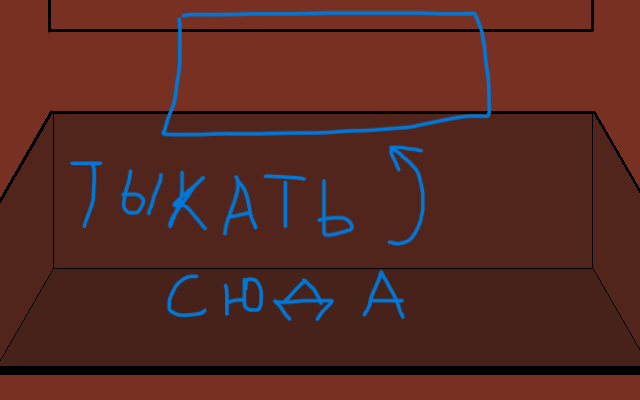 ТЫКАТЬ
СЮДА